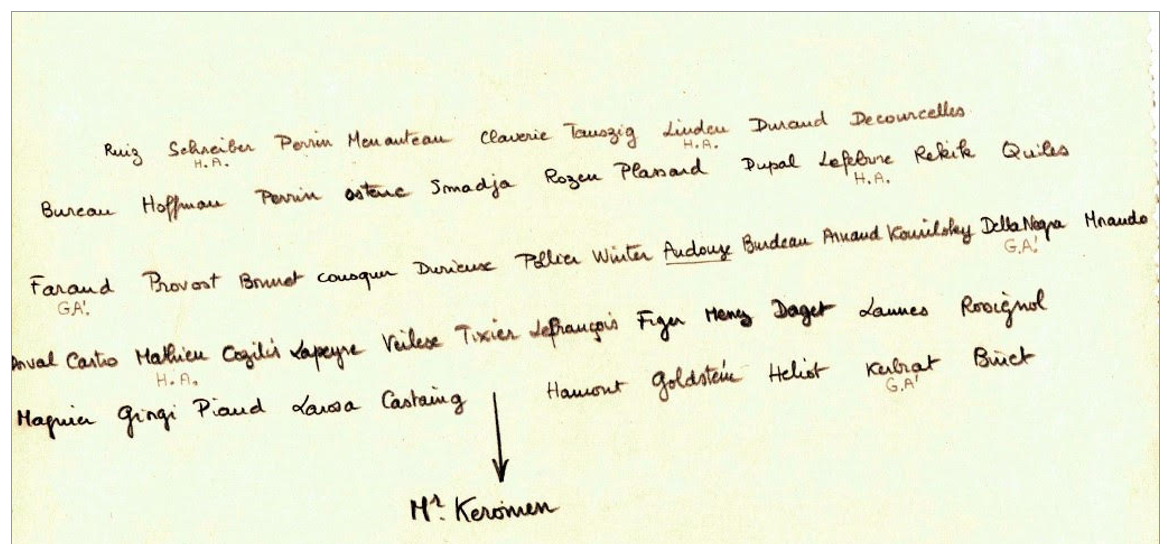 Ruiz Schreiber Perrin Menanteau Claverie Tauszig Linden Durand Decourcelles
H.A. H.A.
Bureau Hoffman Perrin Smadja Rozen Plassard Dupal Lefebvre Rekik Quiles
H.A.
Farand Provost Bonnet Cousquer Durieux Pollier Winter Audouze Burdeau Arnaud Kourilsky Della Negra
G.A! G.A!
Castro Mathieu Lapeyre Tixier Lefrançois Figer Daget Lannes Rosignol
H.A.
Magnier Gingi Piaud Larosa Castaing Hamont Goldstein Heliot Kerbrat Binet
G.A!
Mr. Keromen